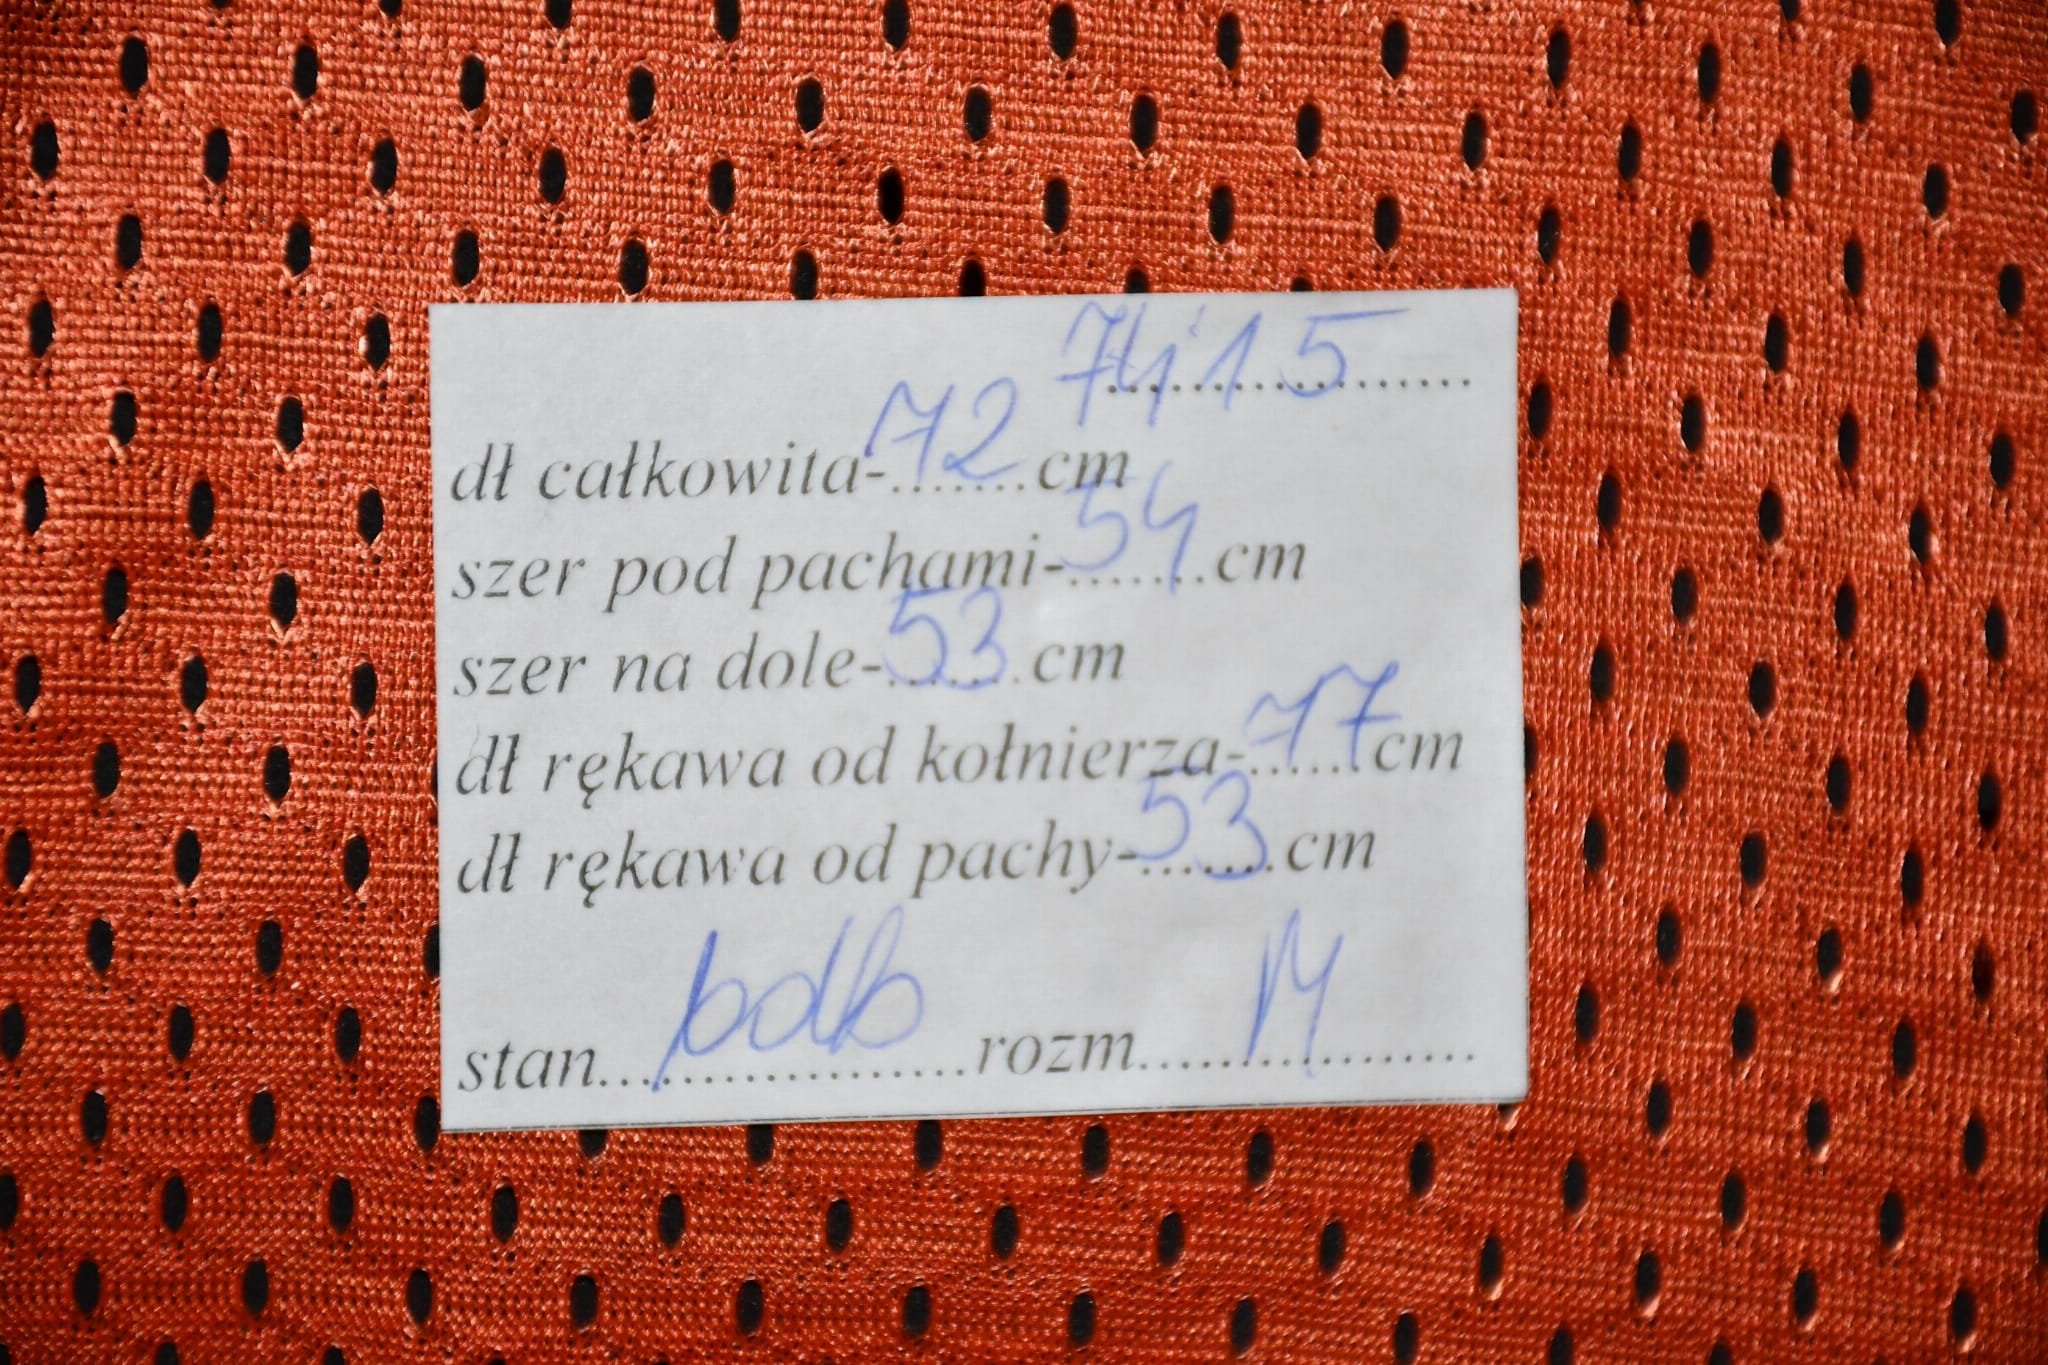 dł całkowita-72cm
szer pod pachami-54cm
szer na dole-53cm
dł rękawa od kołnierza-77cm
dł rękawa od pachy-53cm
stan bdb rozm M